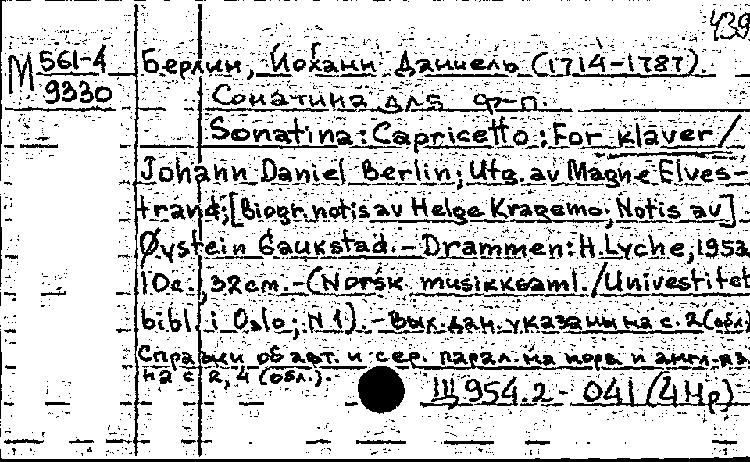 439
М 561-4
9330
Берлин, Йоханн Даниель (1714-1787).
Сонатина для ф-п.
Sonatina: Capricetto: For klaver /
Johann Daniel Berlin; Utg. av Magne Elves-
trand; [Biogr. notis av Helge Kragemo; Notis av]
Øystein Gaukstad. - Drammen: H. Lyche, 1953
10с., 32см. - (Norsk musikksaml. / Univestitet
bibl. i Oslo; N 1). - Вых. дан. указаны на с. 2 (обл)
Справки об авт. и сер. парал. на норв и англ. яз.
на с 2, 4 (обл.).
Щ 954.2 - 041 (4Нр)